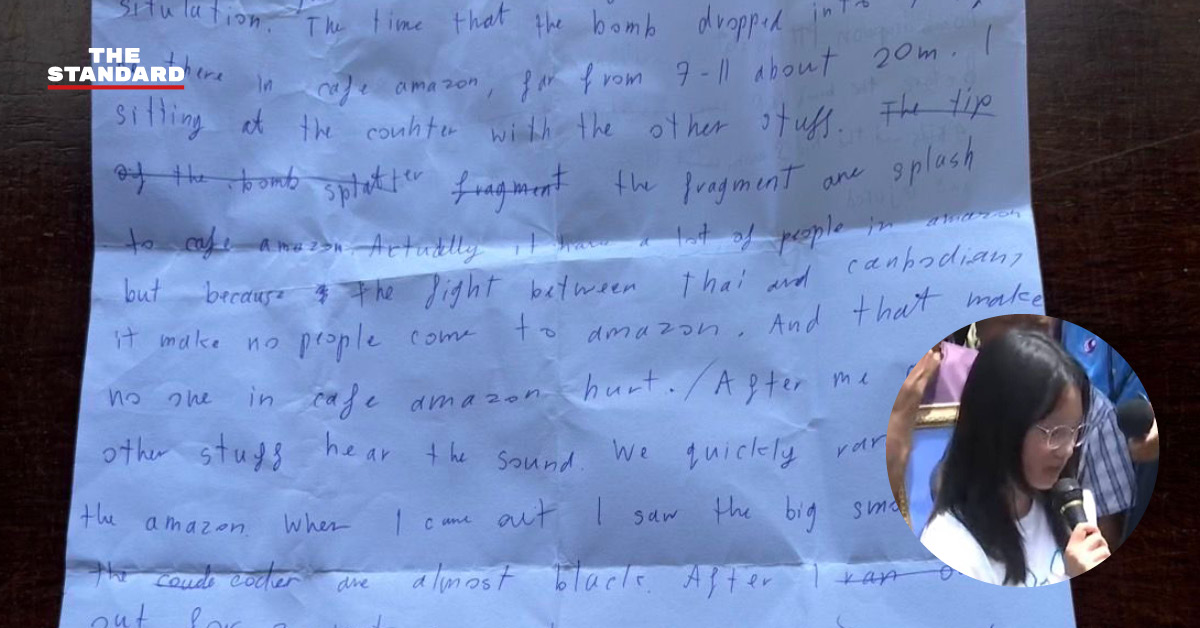 situlation. The time that the bomb dropped into
THE
STANDARD
there in cafe amazon, far from 7-11 about 20m. I
sitting at the counter with the other stuff. The tip
of the bomb splatter fragment the fragment are splash
to cafe amazon. Actually it have a lot of people in amazon
but because the fight between Thai and canbodians
it make no people come to amazon. And that make
no one in cafe amazon hurt. / After me
other stuff hear the sound. We quickly ran
the amazon. When I came out I saw the big smo
the coude coder are almost black. After I ran o
out for